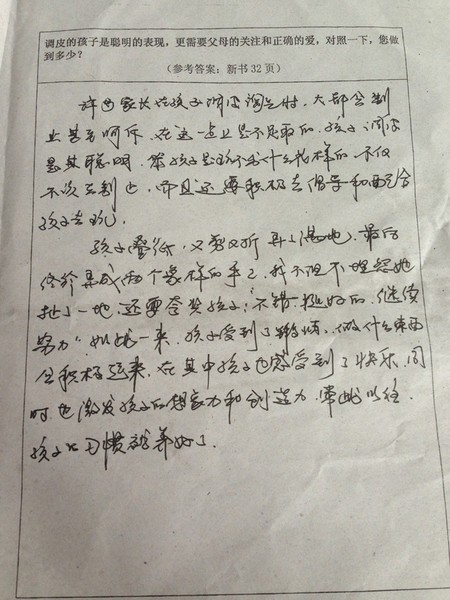 调皮的孩子是聪明的表现，更需要父母的关注和正确的爱，对照一下，您做
到多少？
（参考答案：新书32页）
许多家长在孩子调皮淘气时，大部分制
止甚至呵斥，在这一点上是不足取的，孩子调皮
是其聪明，孩子是玩什么花样的，不仅
不次去制止，而且还要积极去倡导和配合
孩子去玩。
孩子叠纸，又剪又折弄了满地，最后
终于弄成两个象样的手工，我不但不埋怨她
扯了一地，还要夸奖孩子："不错，挺好的，继续
努力"如此一来，孩子受到了激情，做什么东西
会积极起来，在其中孩子也感受到了快乐，同
时也激发孩子的想象力和创造力，常此以往，
孩子的习惯就养好了。